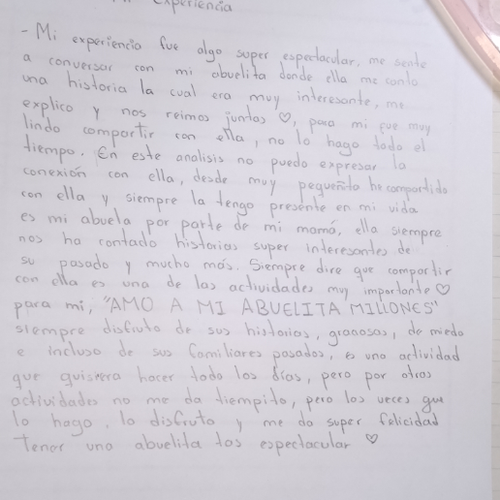 Mi Experiencia
- Mi experiencia fue algo super espectacular, me sente
a conversar con mi abuelita donde ella me conto
una historia la cual era muy interesante, me
explico y nos reimos juntas ♡, para mi fue muy
lindo compartir con ella, no lo hago todo el
tiempo. En este analisis no puedo expresar la
conexión con ella, desde muy pequeñita he compartido
con ella y siempre la tengo presente en mi vida
es mi abuela por parte de mi mamá, ella siempre
nos ha contado historias super interesantes de
su pasado y mucho más. Siempre dire que compartir
con ella es una de las actividades muy importante ♡
para mi, "AMO A MI ABUELITA MILLONES"
siempre disfruto de sus historias, graciosas, de miedo
e incluso de sus familiares pasados, es una actividad
que quisiera hacer todo los días, pero por otras
actividades no me da tiempito, pero las veces que
lo hago, lo disfruto y me da super felicidad
tener una abuelita tas espectacular ♡